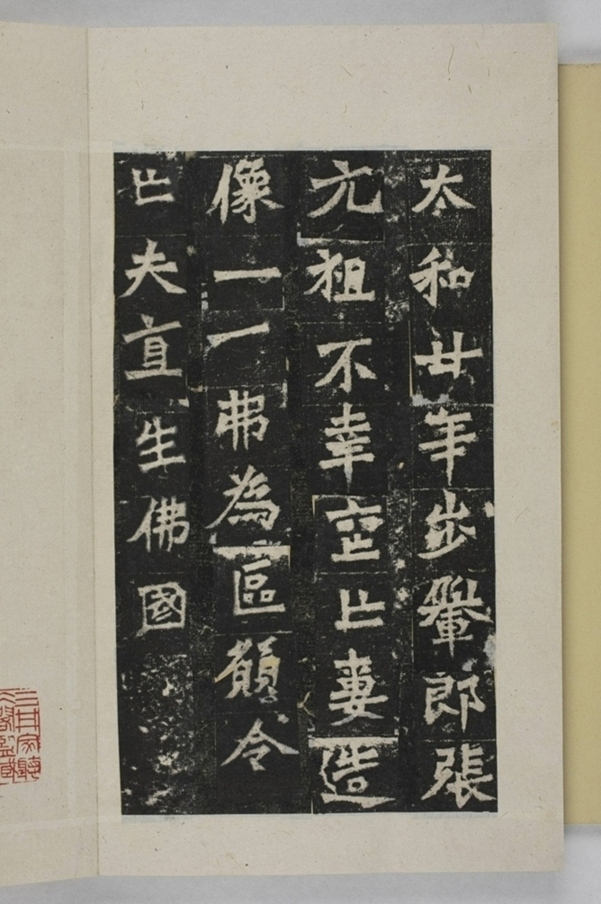 太和廿年步轝郎張
元祖不幸喪亡妻造
像一一弗為區願令
亡夫直生佛國